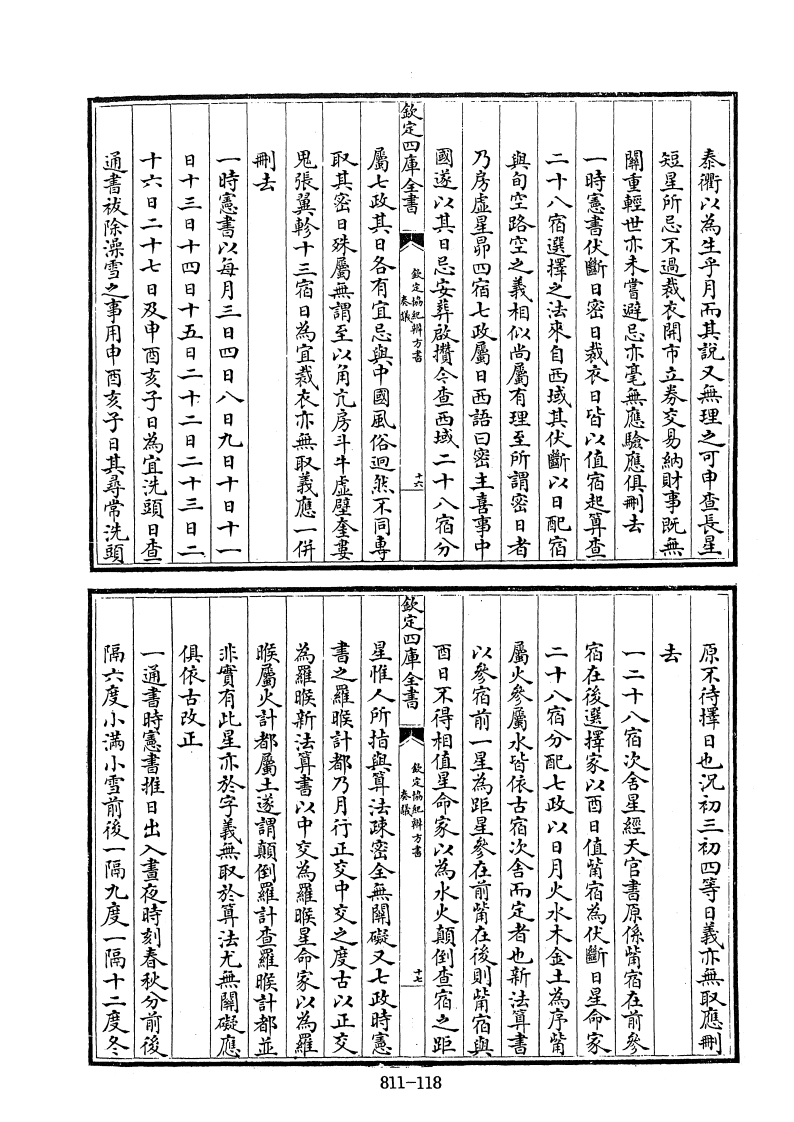 泰衢以為生乎月而其說又無理之可申查長星
短星所忌不過裁衣開市立券交易納財事既無
關重輕世亦未嘗避忌亦毫無應驗應俱刪去
一時憲書伏斷日密日裁衣日皆以值宿起算查
二十八宿選擇之法來自西域其伏斷以日配宿
與旬空路空之義相似尚屬有理至所謂密日者
乃房虛星昴四宿七政屬日西語曰密主喜事中
國遂以其日忌安葬啟攢今查西域二十八宿分
欽定四庫全書
欽定協紀辨方書
奏議
十六
屬七政其日各有宜忌與中國風俗迥然不同專
取其密日殊屬無謂至以角亢房斗牛虛壁奎婁
鬼張翼軫十三宿日為宜裁衣亦無取義應一併
刪去
一時憲書以每月三日四日八日九日十日十一
日十三日十四日十五日二十二日二十三日二
十六日二十七日及申酉亥子日為宜洗頭日查
通書祓除澡雪之事用申酉亥子日其尋常洗頭
原不待擇日也況初三初四等日義亦無取應刪
去
一二十八宿次舍星經天官書原係觜宿在前參
宿在後選擇家以酉日值觜宿為伏斷日星命家
二十八宿分配七政以日月火水木金土為序觜
屬火參屬水皆依古宿次舍而定者也新法算書
以參宿前一星為距星參在前觜在後則觜宿與
酉日不得相值星命家以為水火顛倒查宿之距
欽定四庫全書
欽定協紀辨方書
奏議
十七
星惟人所指與算法疎密全無關礙又七政時憲
書之羅㬋計都乃月行正交中交之度古以正交
為羅㬋新法算書以中交為羅㬋星命家以為羅
㬋屬火計都屬土遂謂顛倒羅計查羅㬋計都並
非實有此星亦於字義無取於算法尤無關礙應
俱依古改正
一通書時憲書推日出入晝夜時刻春秋分前後
隔六度小滿小雪前後一隔九度一隔十二度冬
811-118